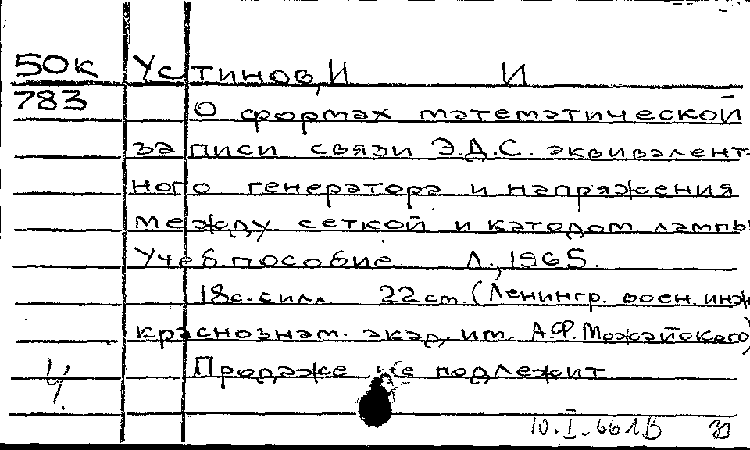 50К Устинов, И И
783 О формах математической
записи связи Э.Д.С. эквивалент-
ного генератора и напряжения
между сеткой и катодом лампы
Учеб пособие Л., 1965.
18с. с илл. 22 cm. (Ленингр. воен. инж
краснознам. акад, им. А.Ф. Можайского)
Продаже не подлежит
10.I.66